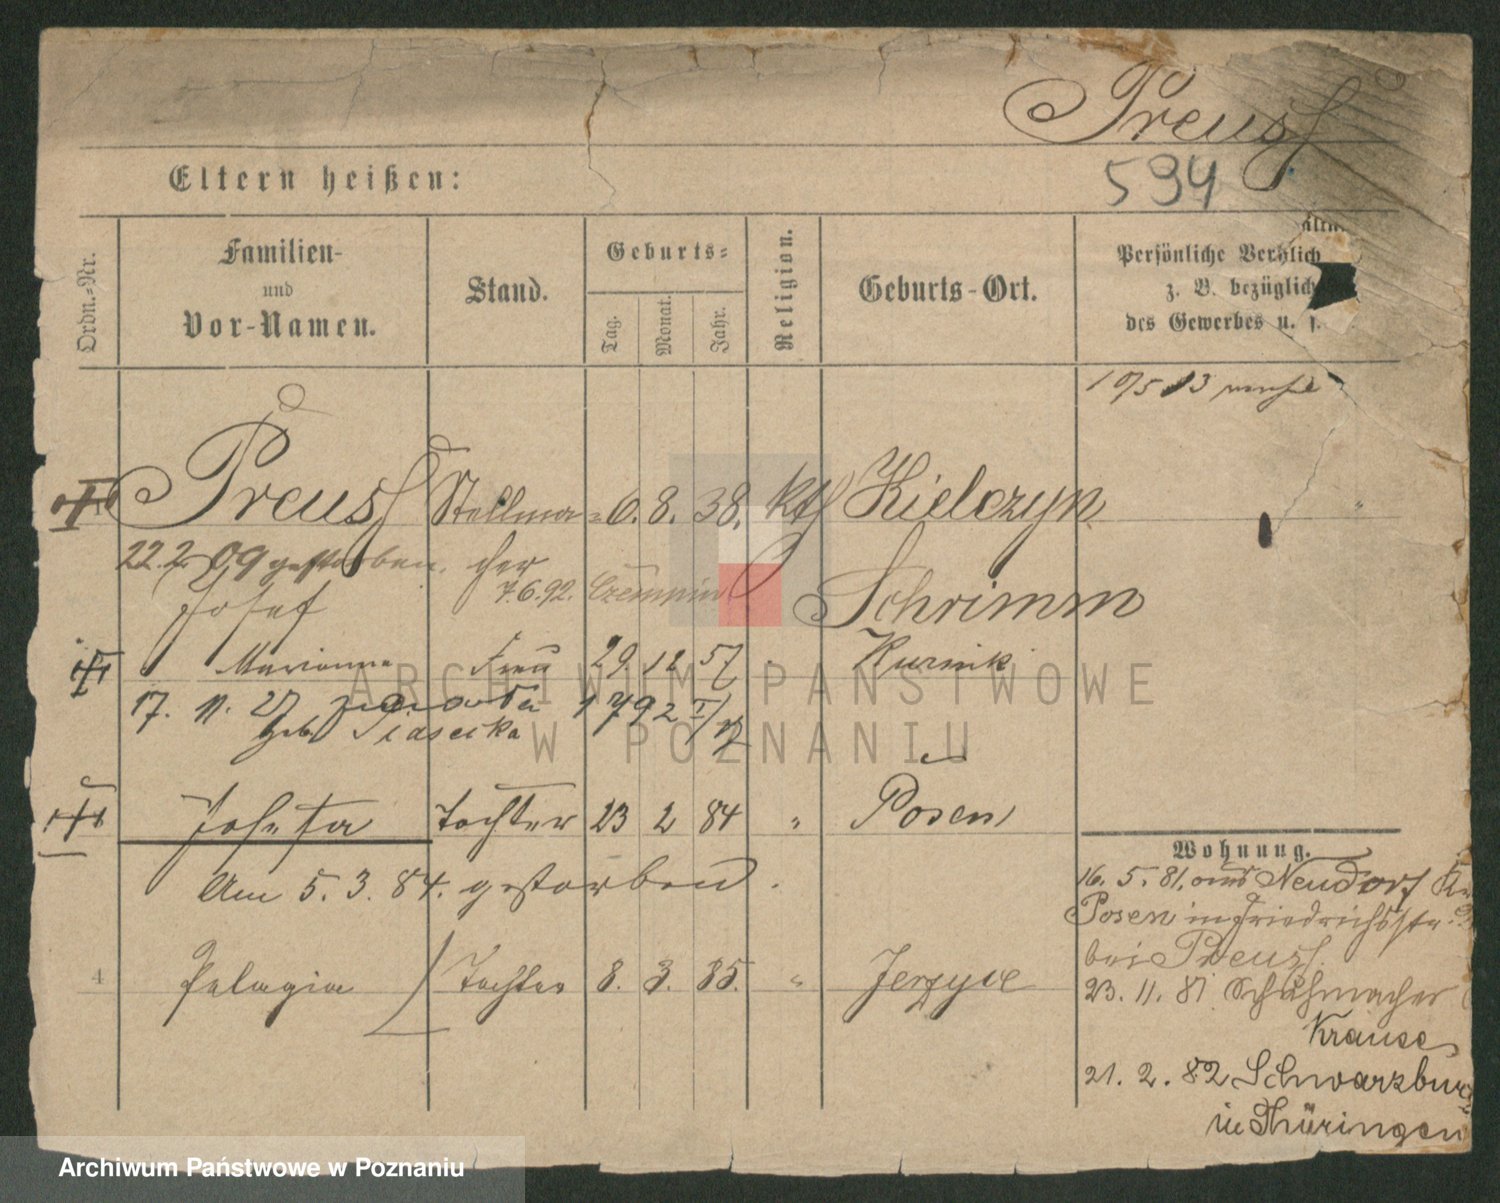 Preuss
Eltern heißen:
594
Ordn.-Nr.
Familien-
und
Vor-Namen.
Stand.
Geburts-
Tag.
Monat.
Jahr.
Religion.
Geburts-Ort.
Persönliche Verhält
z. B. bezüglich
des Gewerbes u. s.
Preuss Stellma- 6. 8. 38. kth Kielczyn
22.2.09 gestorben. cher
7.6.92. Czempin Schrimm
Josef
Marianna Frau 29. 12 57 Kurnik
17. 11. 27
geb. Piasecka
Josefa Tochter 23 2 84 " Posen
Am 5. 3. 84. gestorben.
4 Pelagia Tochter 8. 3. 85. " Jerzyce
Wohnung.
16. 5. 81. aus Neudorf
Posen in Friedrichsstr.
bei Preuss.
23. 11. 81 Schuhmacher
Krause
21. 2. 82 Schwarzburg
in Thüringen
ARCHIWUM PAŃSTWOWE
W POZNANIU
Archiwum Państwowe w Poznaniu